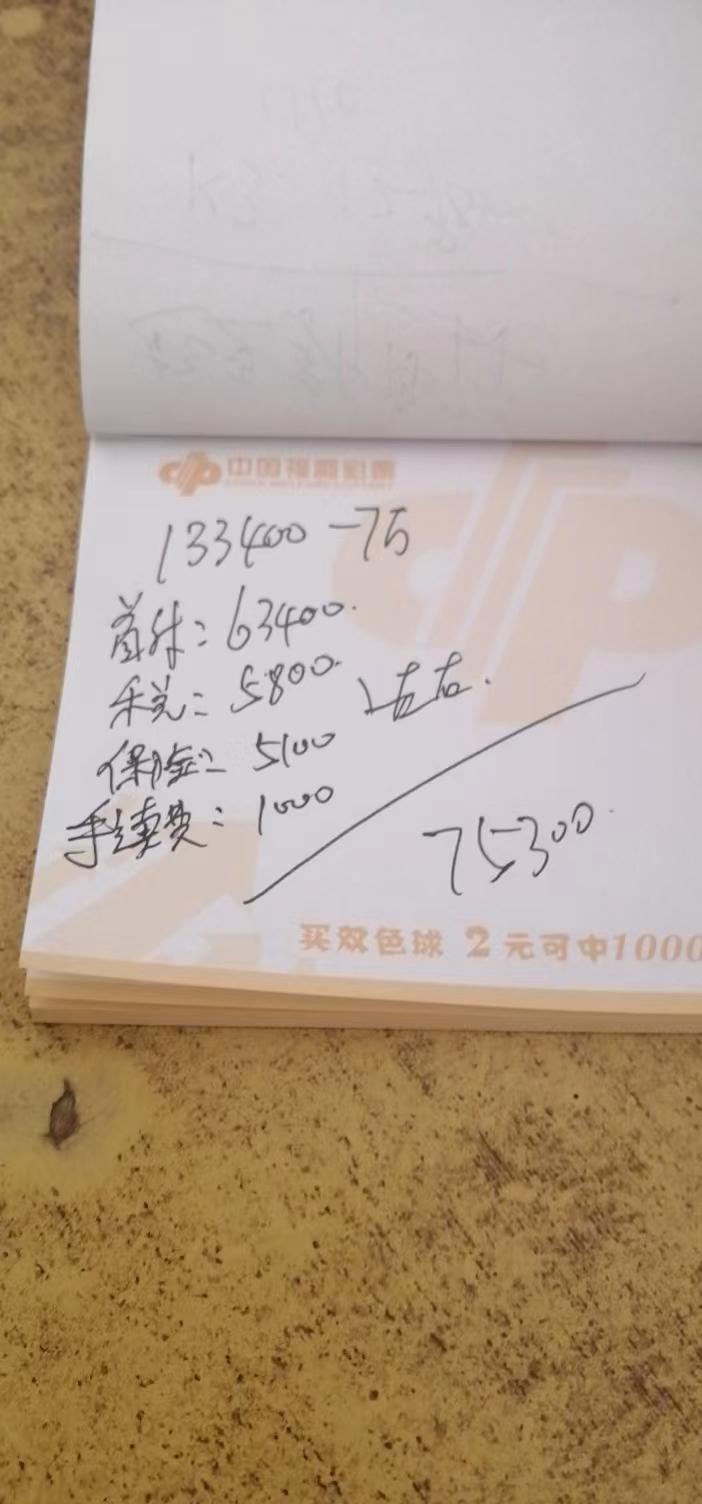 中国福利彩票
133400-75
首付:63400.
税:5800.
左右.
保险:5100
手续费:1000
75300.
买双色球 2元可中1000